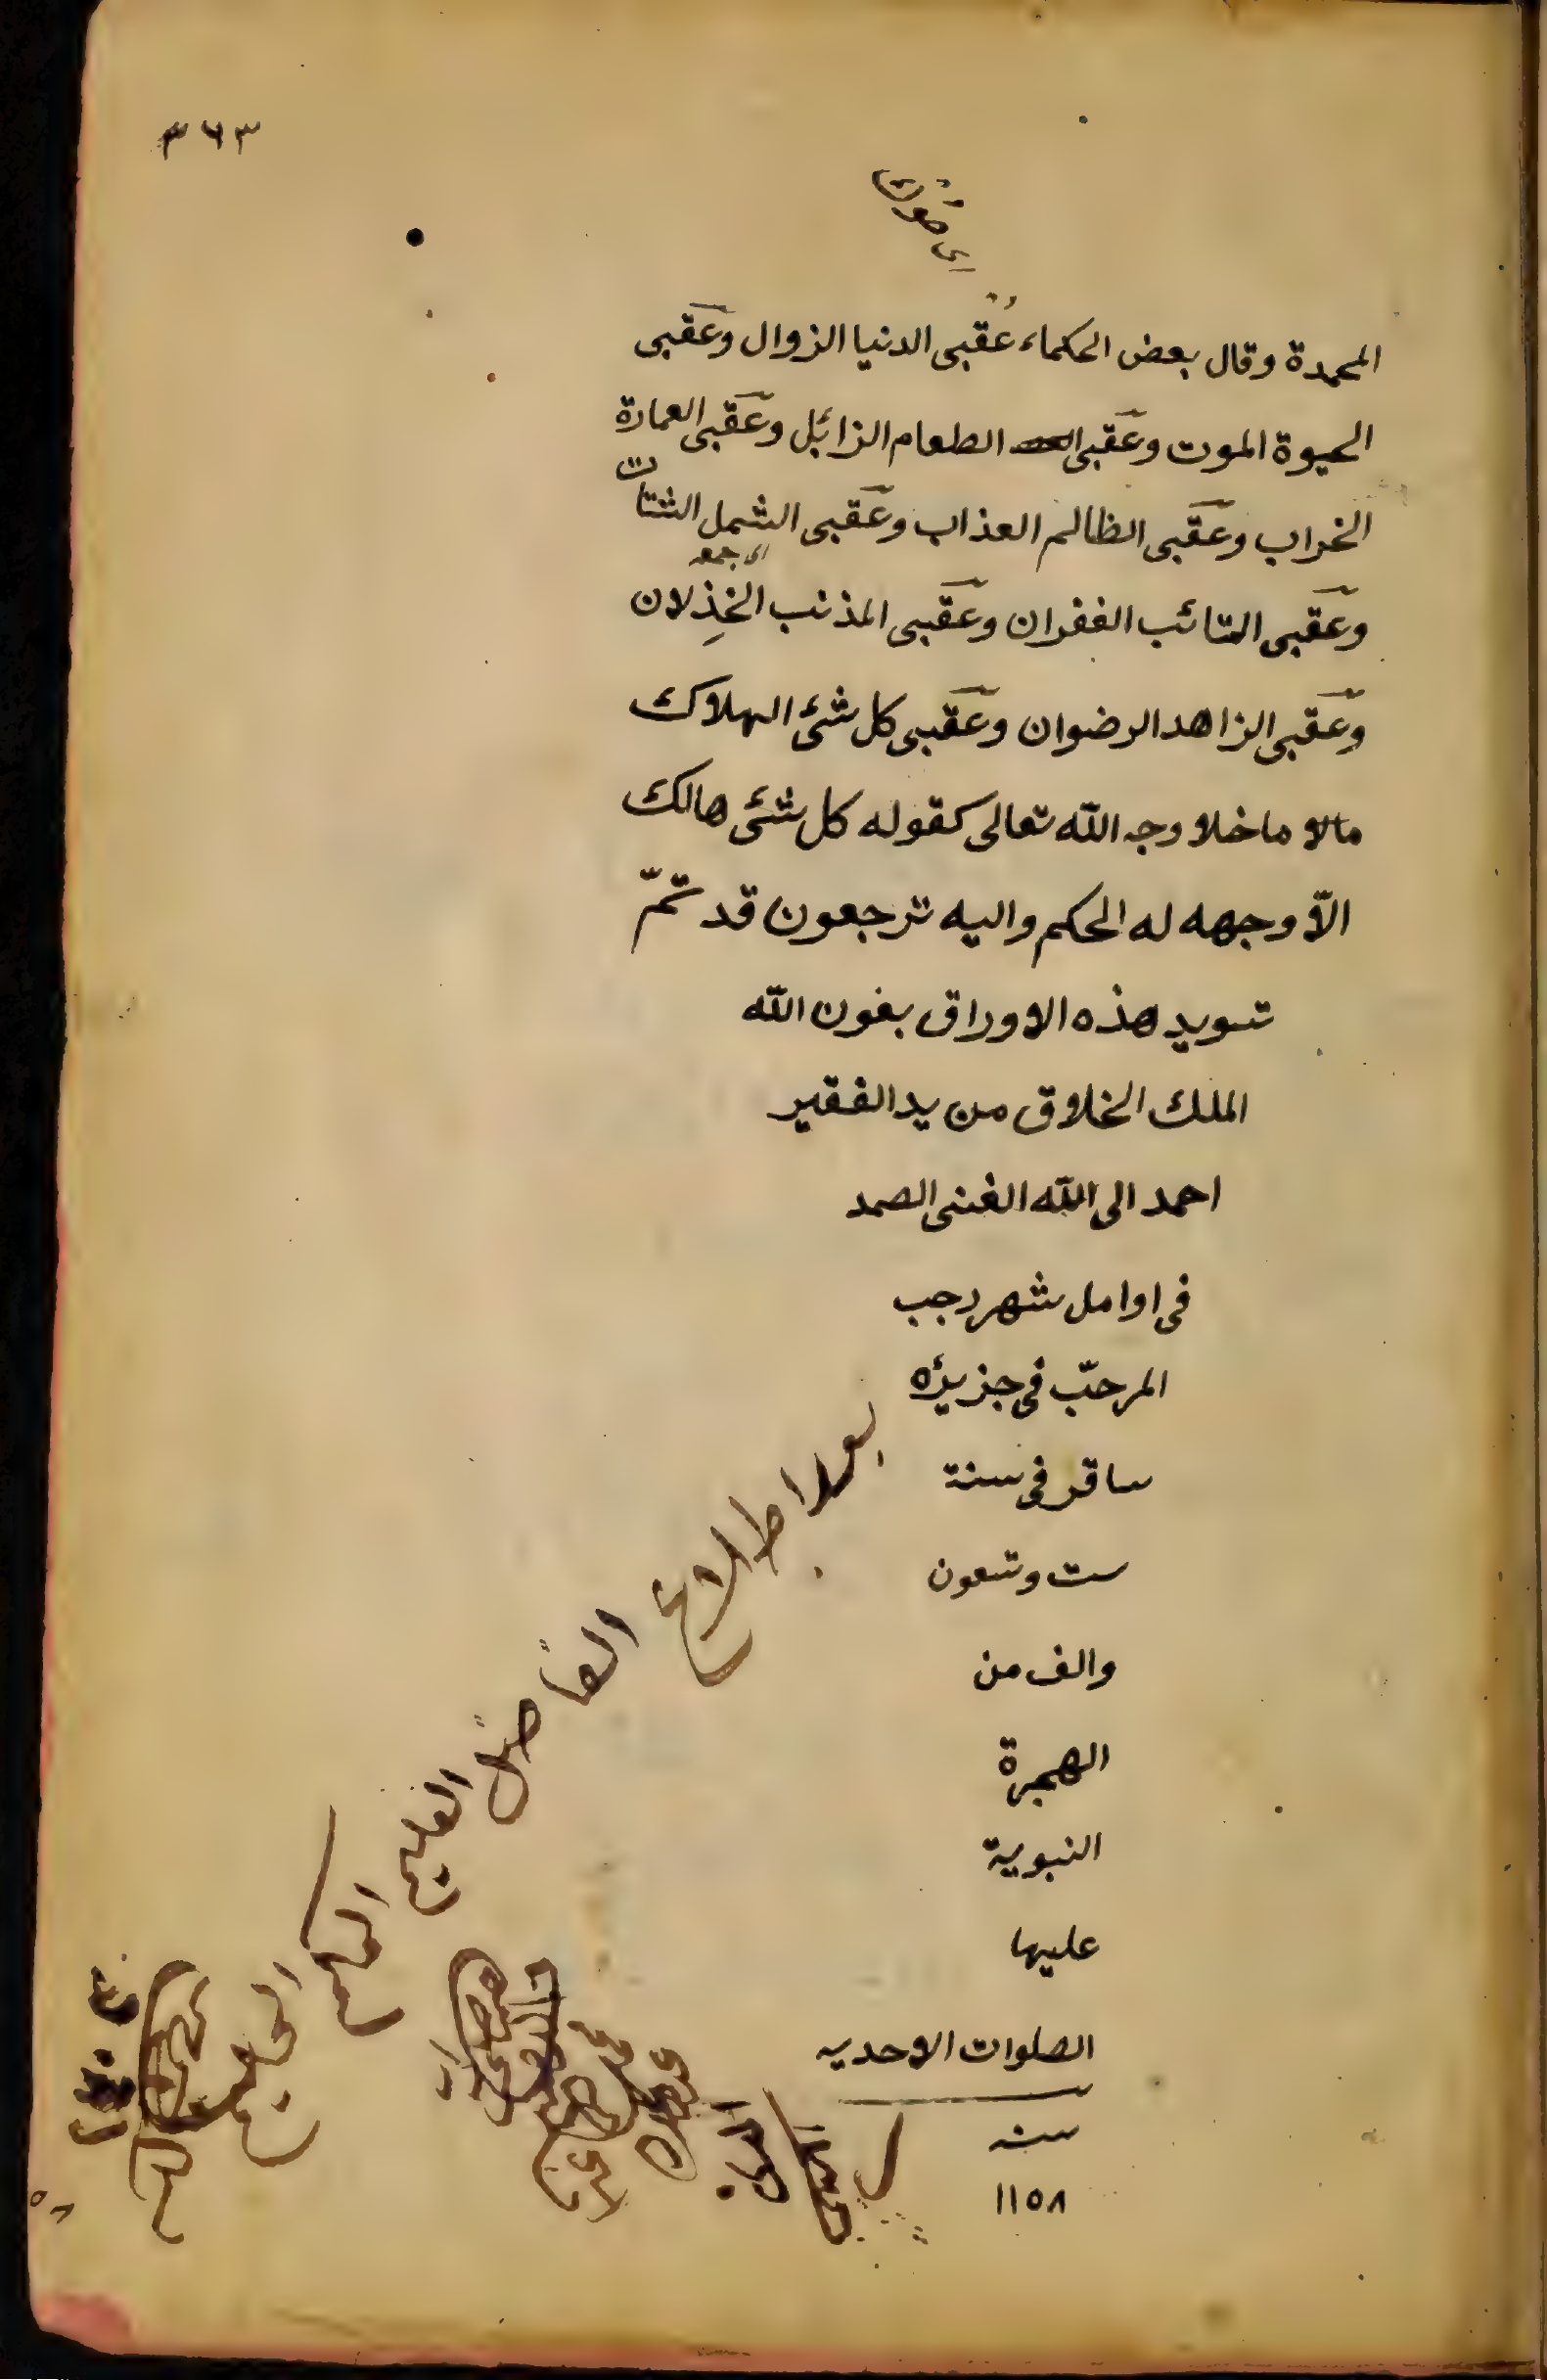 ٣٦٣
المحمدة وقال بعض الحكماء عُقبى الدنيا الزوال وعَقبى
الحيوة الموت وعَقبى الطعام الزائل وعَقبى العمارة
الخراب وعَقبى الظالم العذاب وعَقبى الشمل الشتات
اى جمعه
وعَقبى التائب الغفران وعَقبى المذنب الخِذلان
وعَقبى الزاهد الرضوان وعَقبى كل شئ الهلاك
مالا ماخلا وجه الله تعالى كقوله كل شئ هالك
الاّ وجهه له الحكم واليه ترجعون قد تمّ
تسويد هذه الاوراق بغون الله
الملك الخلاق من يد الفقير
احمد الى الله الغنى الصمد
فى اوامل شهر رجب
المرحبّ فى جزيره
ساقر فى سنة
ست وتسعون
والف من
الهجرة
النبوية
عليها
الصلوات الاحديه
سنه
١١٥٨
بعد اطلاع الفاضل العليم